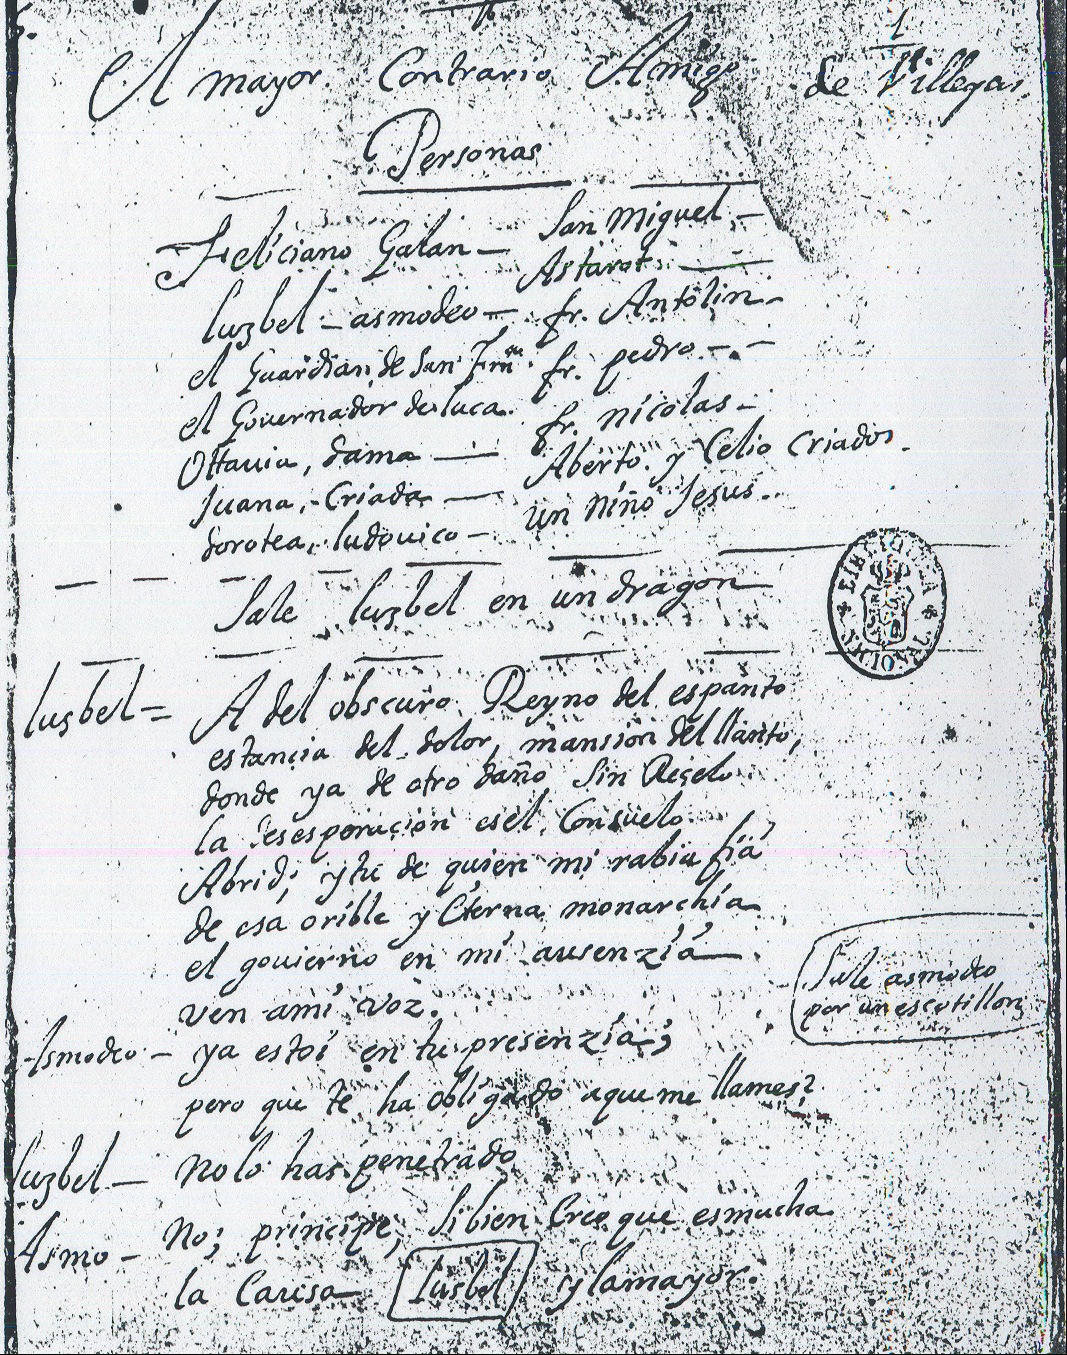 1
El mayor Contrario Amigo de Villegas
Personas
Feliciano Galan — San Miguel —
Astarot —
luzbel — asmodeo — fr. Antolin —
el Guardian de San Frn^co. fr. pedro — . —
el Governador de luca. fr. nicolas —
Ottauia, dama — Aberto. y Celio criados.
Juana, - Criada — un niño Jesus..
dorotea, ludouico —
Sale luzbel en un dragon
LIBRERIA NACIONAL
luzbel = A del obscuro Reyno del espanto
estançia del dolor, mansion del llanto,
donde ya de otro daño Sin Reçelo
la desesperaçion esel Consuelo
Abrid; y tu de quien mi rabia fia
de esa orible y Eterna monarchia
el gouierno en mi ausenzia
ven ami voz.
Sale asmodeo
por un escotillon
Asmodeo — ya estoi en tu presenzia;
pero que te ha obligado aque me llames?
luzbel — no lo has penetrado
Asmo — No; principe, Sibien Creo que esmucha
la Causa luzbel y lamayor.